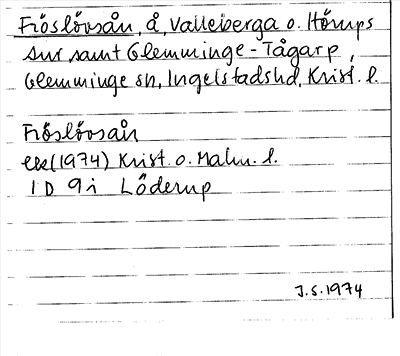 Fröslövsån, å, Valleberga o. Hörups
snr samt Glemminge-Tågarp,
Glemminge sn, Ingelstadshd, Krist. l.
Fröslövsån
ek (1974) Krist. o. Malm. l.
1D 9i Löderup
J.S. 1974